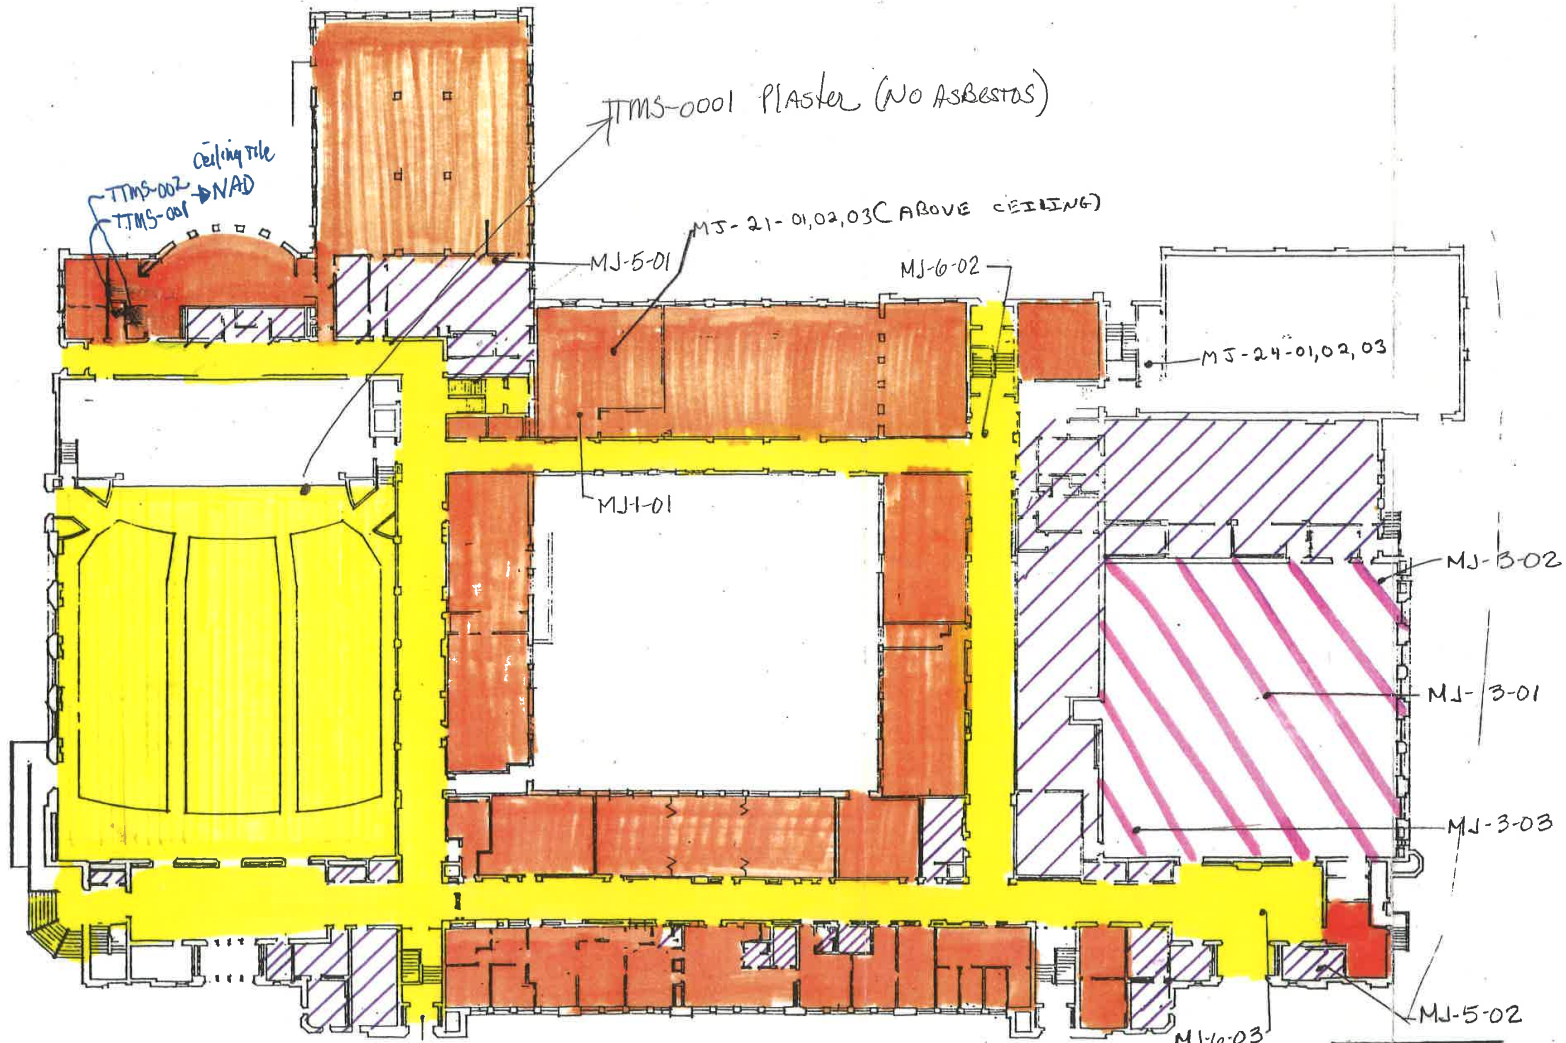 TTMS-0001 Plaster (NO ASBESTOS)
Ceiling Tile
TTMS-002 → NAD
TTMS-001
MJ-21-01,02,03 (ABOVE CEILING)
MJ-5-01
MJ-6-02
MJ-24-01,02,03
MJ-1-01
MJ-3-02
MJ-3-01
MJ-3-03
MJ-5-02
MJ-6-03